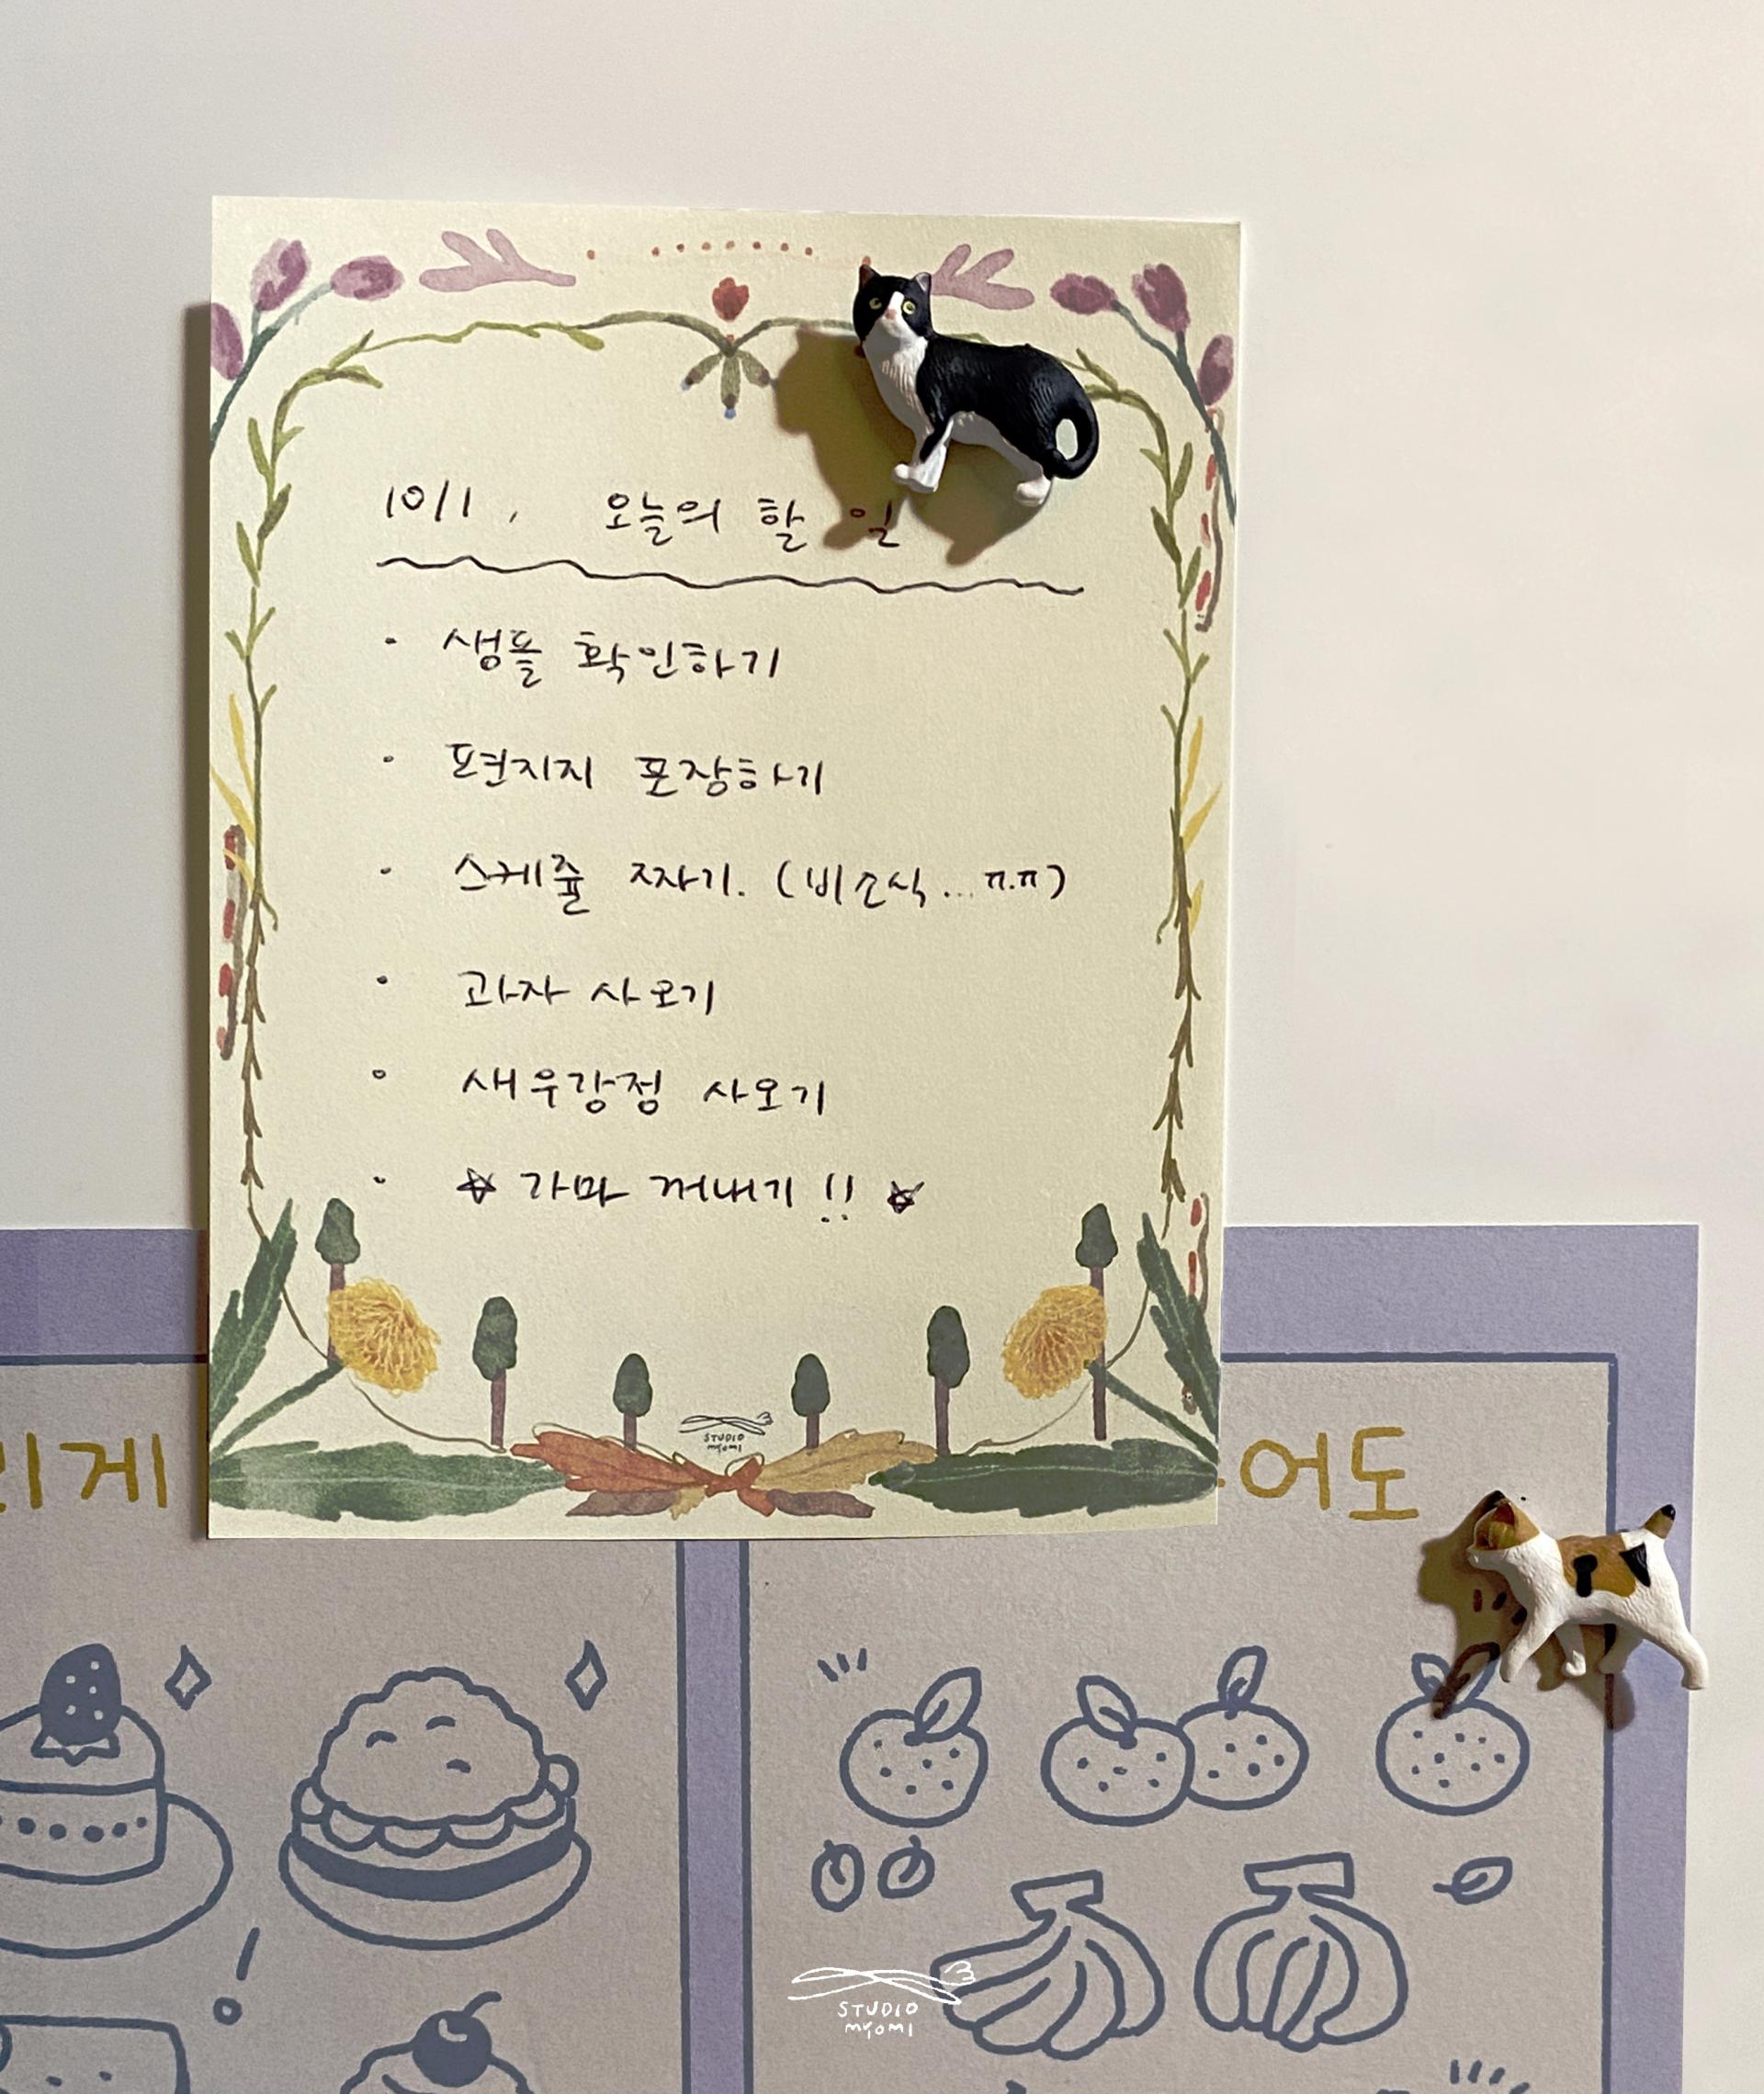 10/1, 오늘의 할 일
· 샘플 확인하기
· 편지지 포장하기
· 스케쥴 짜기. (비소식... ㅠ.ㅠ)
· 과자 사오기
· 새우강정 사오기
· ☆ 가마 꺼내기!! ☆
STUDIO
myomi
리게
어도
STUDIO
myomi